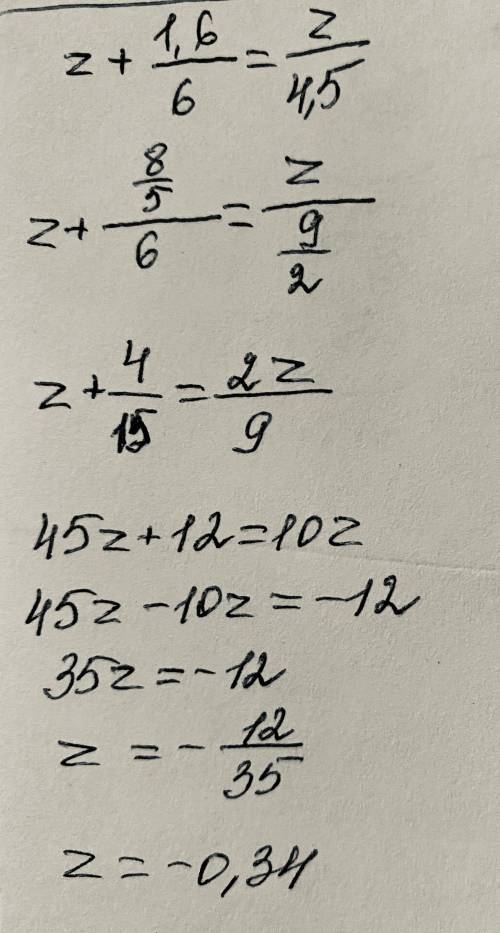 z + 1,6/6 = z/4,5
z + (8/5)/6 = z/(9/2)
z + 4/15 = 2z/9
45z + 12 = 10z
45z - 10z = -12
35z = -12
z = - 12/35
z = -0,34